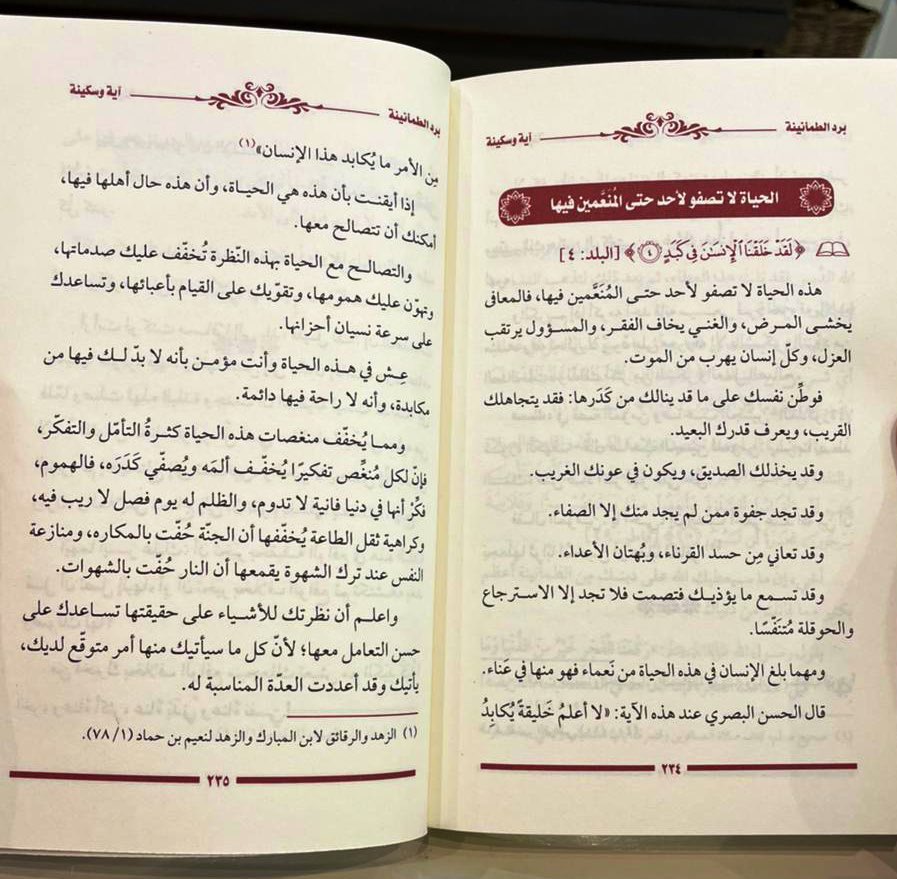 برد الطمأنينة
آية وسكينة
الحياة لا تصفو لأحد حتى المُنَعَّمين فيها
﴿لَقَدْ خَلَقْنَا ٱلْإِنسَٰنَ فِى كَبَدٍ ٤﴾ [البلد: ٤]
هذه الحياة لا تصفو لأحد حتى المُنَعَّمين فيها، فالمعافى
يخشى المرض، والغني يخاف الفقر، والمسؤول يرتقب
العزل، وكلّ إنسان يهرب من الموت.
فوطِّن نفسك على ما قد ينالك من كَدَرها: فقد يتجاهلك
القريب، ويعرف قدرك البعيد.
وقد يخذلك الصديق، ويكون في عونك الغريب.
وقد تجد جفوة ممن لم يجد منك إلا الصفاء.
وقد تعاني مِن حسد القرناء، وبُهتان الأعداء.
وقد تسمع ما يؤذيك فتصمت فلا تجد إلا الاسترجاع
والحوقلة مُتَنَفّسًا.
ومهما بلغ الإنسان في هذه الحياة من نَعماء فهو منها في عَناء.
قال الحسن البصري عند هذه الآية: «لا أعلمُ خَليقةً يُكابِدُ
٢٣٤
برد الطمأنينة
آية وسكينة
مِن الأمر ما يُكابد هذا الإنسان»(١)
إذا أيقنت بأن هذه هي الحياة، وأن هذه حال أهلها فيها،
أمكنك أن تتصالح معها.
والتصالح مع الحياة بهذه النّظرة تُخفّف عليك صدماتها،
وتهوّن عليك همومها، وتقوّيك على القيام بأعبائها، وتساعدك
على سرعة نسيان أحزانها.
عِش في هذه الحياة وأنت مؤمن بأنه لا بدّ لك فيها من
مكابدة، وأنه لا راحة فيها دائمة.
ومما يُخفّف منغصات هذه الحياة كثرةُ التأمّل والتفكّر،
فإنّ لكل مُنغِّص تفكيرًا يُخفّف ألمَه ويُصفّي كَدَرَه، فالهموم،
فكّر أنها في دنيا فانية لا تدوم، والظلم له يوم فصل لا ريب فيه،
وكراهية ثقل الطاعة يُخفّفها أن الجنّة حُفّت بالمكاره، ومنازعة
النفس عند ترك الشهوة يقمعها أن النار حُفّت بالشهوات.
واعلم أن نظرتك للأشياء على حقيقتها تساعدك على
حسن التعامل معها؛ لأنّ كل ما سيأتيك منها أمر متوقّع لديك،
يأتيك وقد أعددت العدّة المناسبة له.
(١) الزهد والرقائق لابن المبارك والزهد لنعيم بن حماد (١/ ٧٨).
٢٣٥